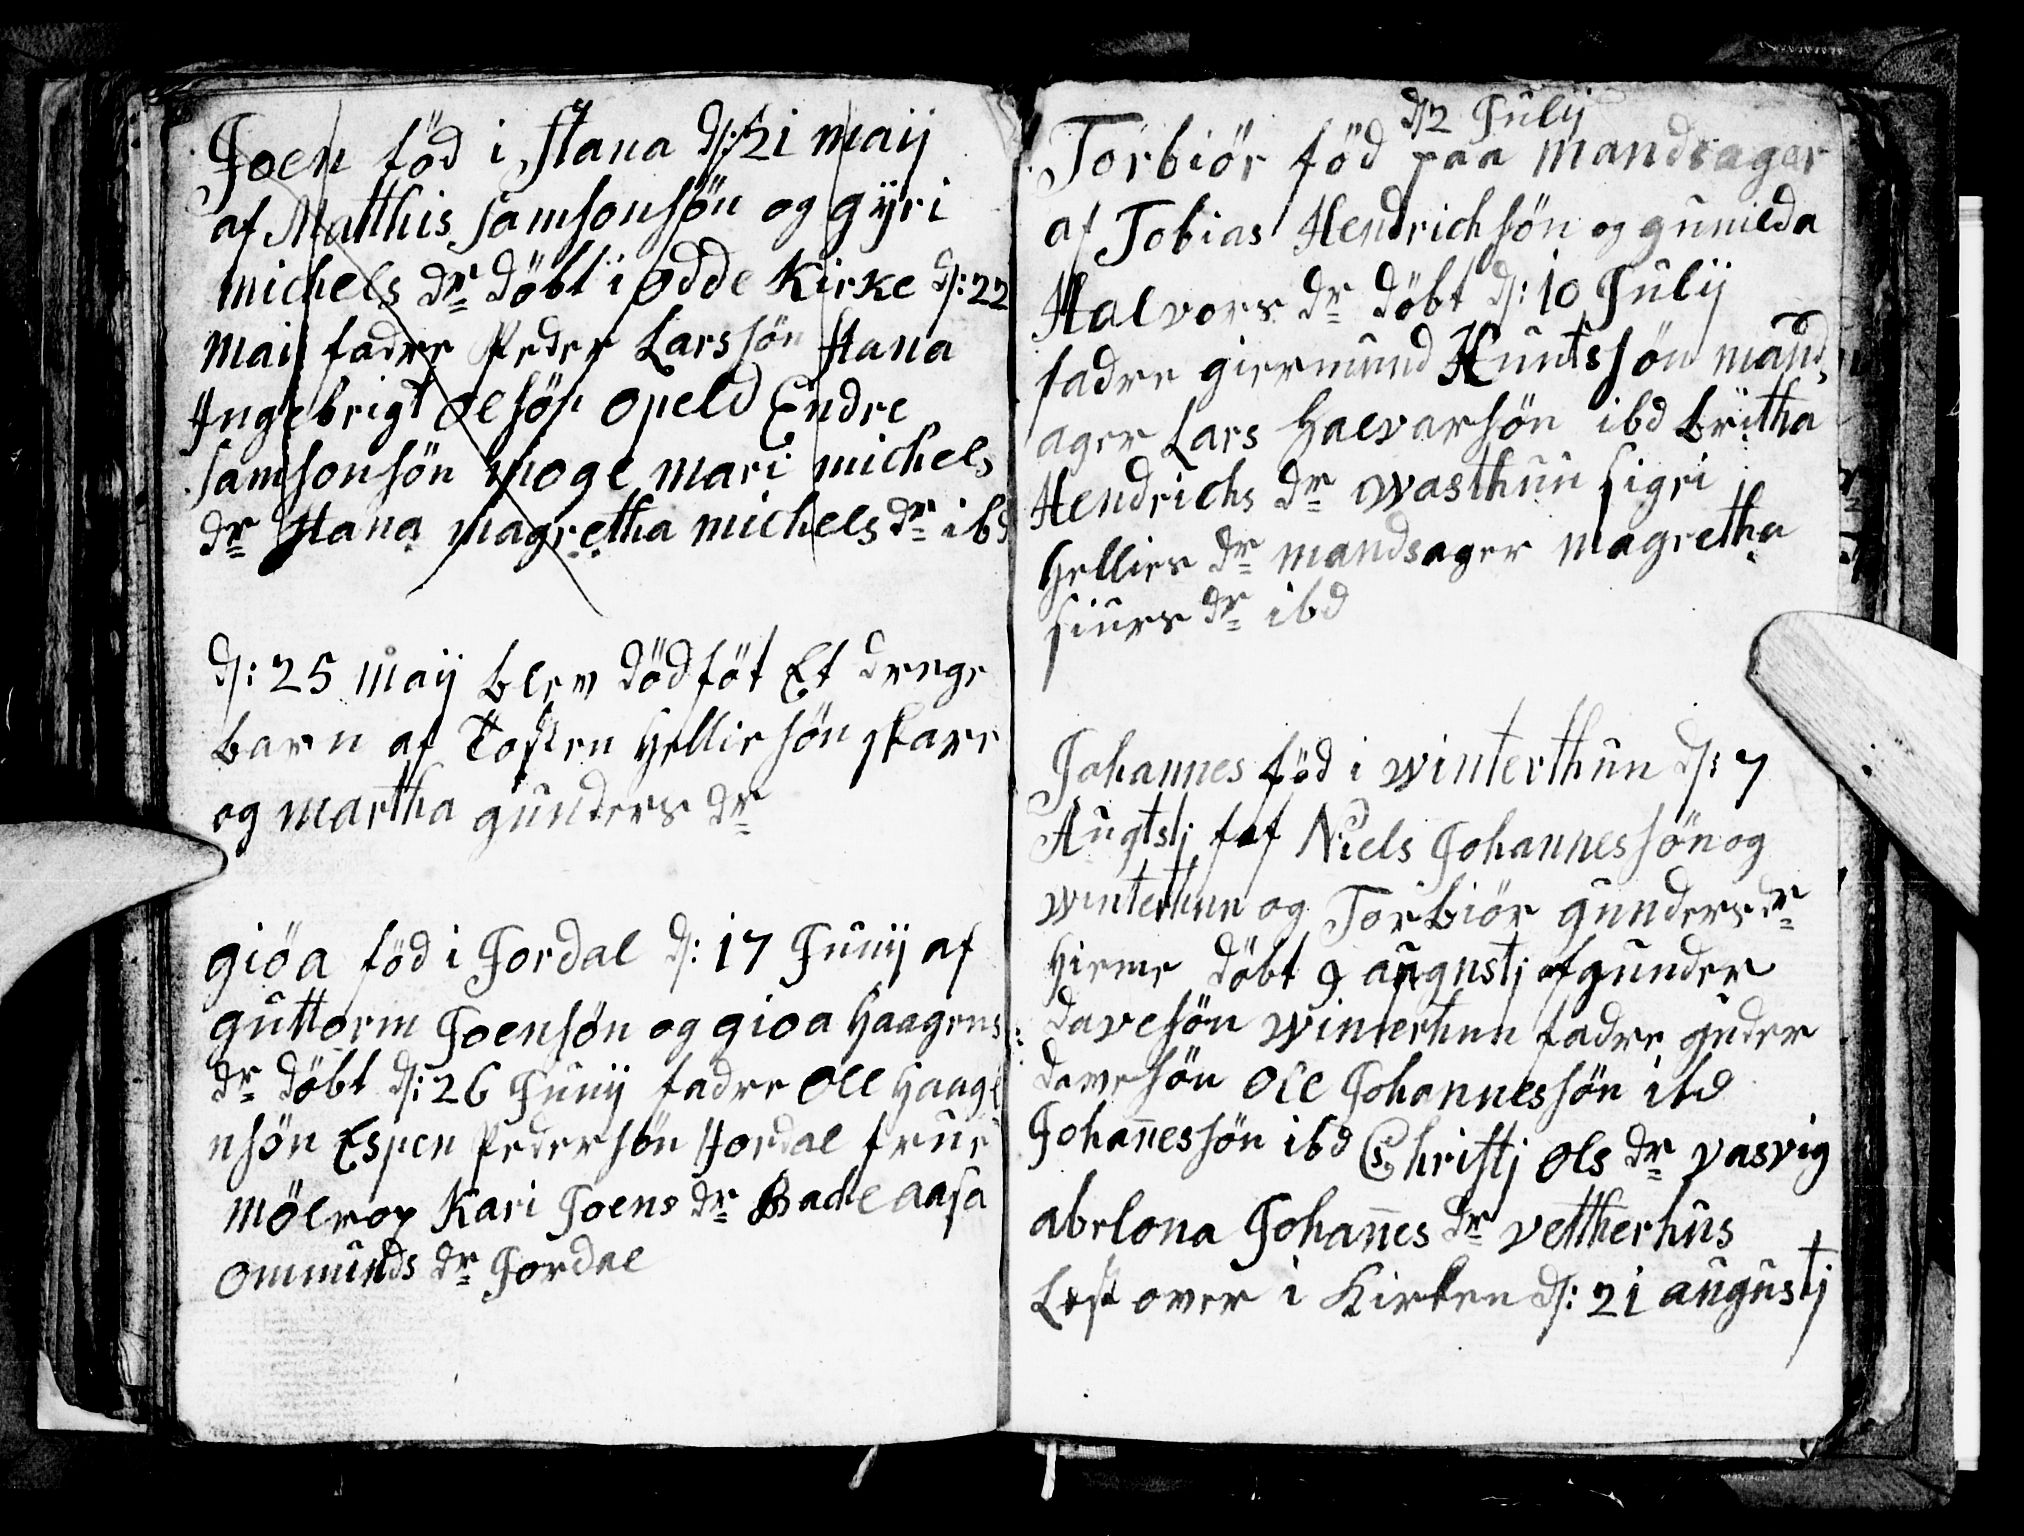 Joen föd i Hana d: 21 maij
af Matthis Samsonsön og gÿri
michels dr döbt i odde Kirke d: 22
mai fadre Peder Larssön Hana
Ingebrigt olsön opeld Endre
Samsonsön moge mari michels
dr Hana magretha michels dr ibd
d: 25 maij blev dödföt Et drenge
barn af Tosten Helliesön skare
og martha gunders dr
giöa föd i Jordal d: 17 Junij af
guttorm Joensön og gioa Haagens
dr döbt d: 26 Junij fadre Oll Haage
nsön Espen Pedersön Hordal frue
mölrop Kari Joens dr Backe aasa
ommunds dr Jordal
d 2 Julij
Torbiör föd paa mandsager
af Tobias Hendrichsön og gunilda
Halvors dr döbt d: 10 Julij
fadre giermund Kuntssön mand,
ager Lars Halvarsön ibd Britha
Hendrichs dr wasthun sigri
Hellies dr mandsager magretha
siurs dr ibd
Johannes föd i winterthun d: 7
Augtstj af Niels Johannessön og
winterhun og Torbiör gunders dr
Hieme döbt 9 augustj af gunder
Davesön winterhun fadre guder
Davesön Ole Johannessön ibd
Johan̄essön ibd Christj Ols dr vasvig
abelona Johan̄es dr vettherhus
Læst over i Kirken d: 21 augustj